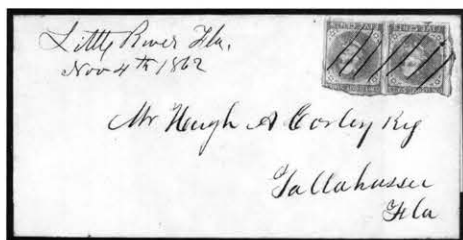 Little River Fla.
Nov 4th 1862
Mr Hugh A Corley
Tallahassee
Fla